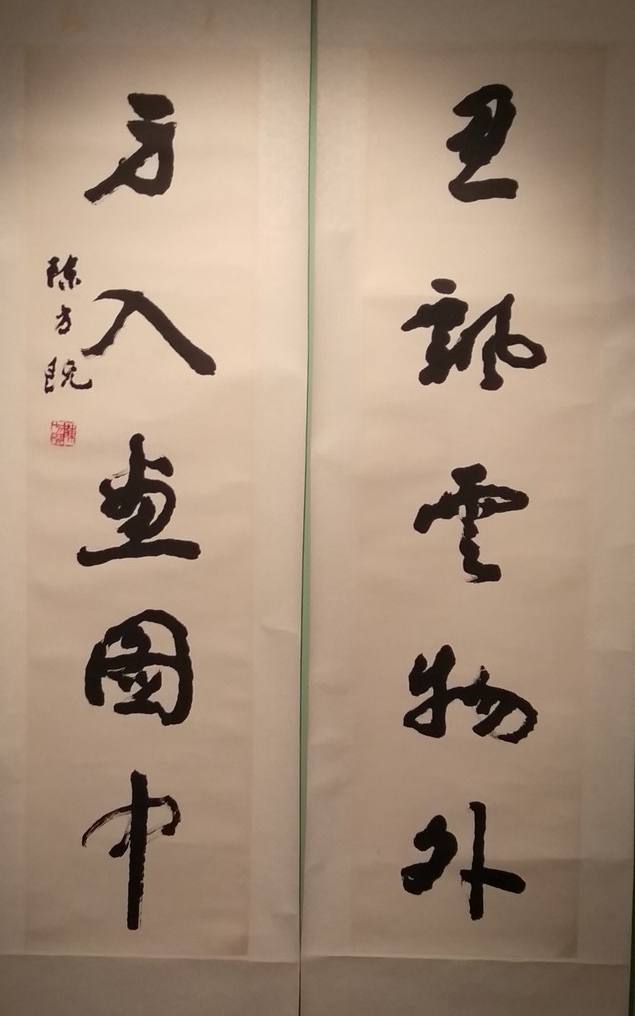 飄雲物外
方入畫圖中
陳方既